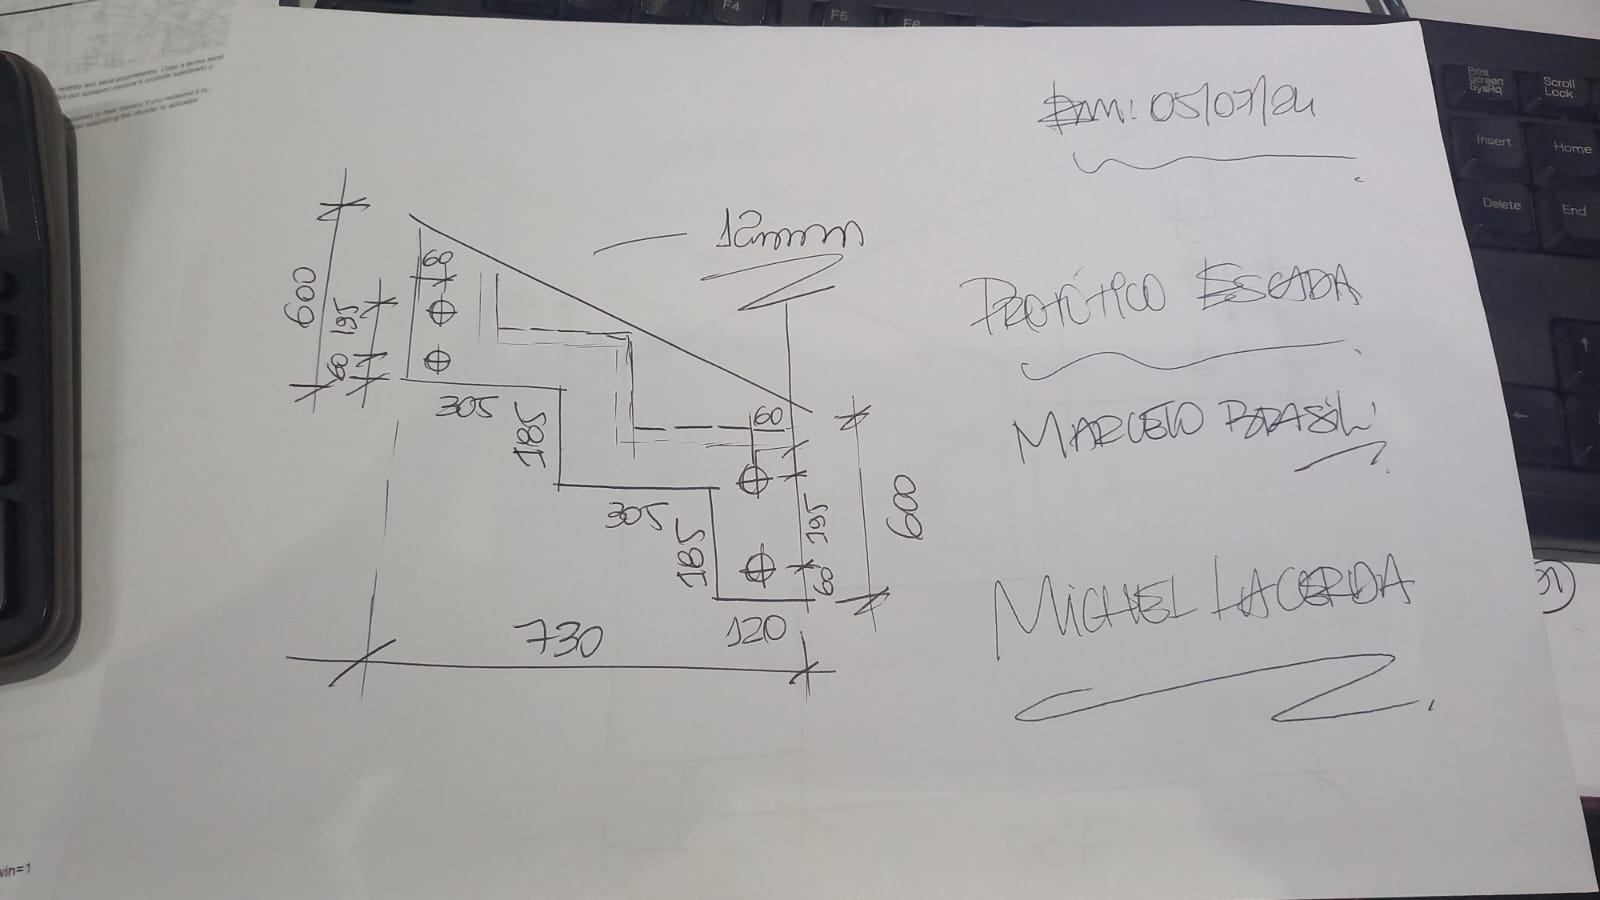 F4
F5
F6
Print
Screen
SysRq
Scroll
Lock
Insert
Home
Delete
End
Em: 05/07/24
12mm
PROTÓTICO ESCADA
MARCELO BRASIL
MIGUEL LACERDA
600
195
60
60
305
185
305
185
60
195
60
600
730
120
vin=1